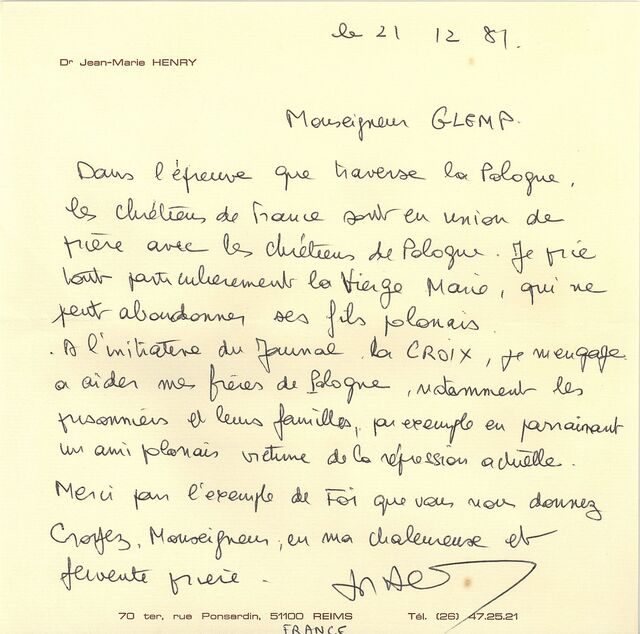 le 21 12 81.
Dr Jean-Marie HENRY
Monseigneur GLEMP.
Dans l'épreuve que traverse la Pologne,
les chrétiens de France sont en union de
prière avec les chrétiens de Pologne. Je prie
tout particulierement la Vierge Marie, qui ne
peut abandonner ses fils polonais.
. A l'initiative du Journal la CROIX, je m'engage
a aider mes frères de Pologne, notamment les
prisonniers et leurs familles, par exemple en parrainant
un ami polonais victime de la répression actuelle.
Merci pour l'exemple de Foi que vous nous donnez
Croyez, Monseigneur, en ma chaleureuse et
fervente prière.
70 ter, rue Ponsardin, 51100 REIMS Tél. (26) 47.25.21
FRANCE